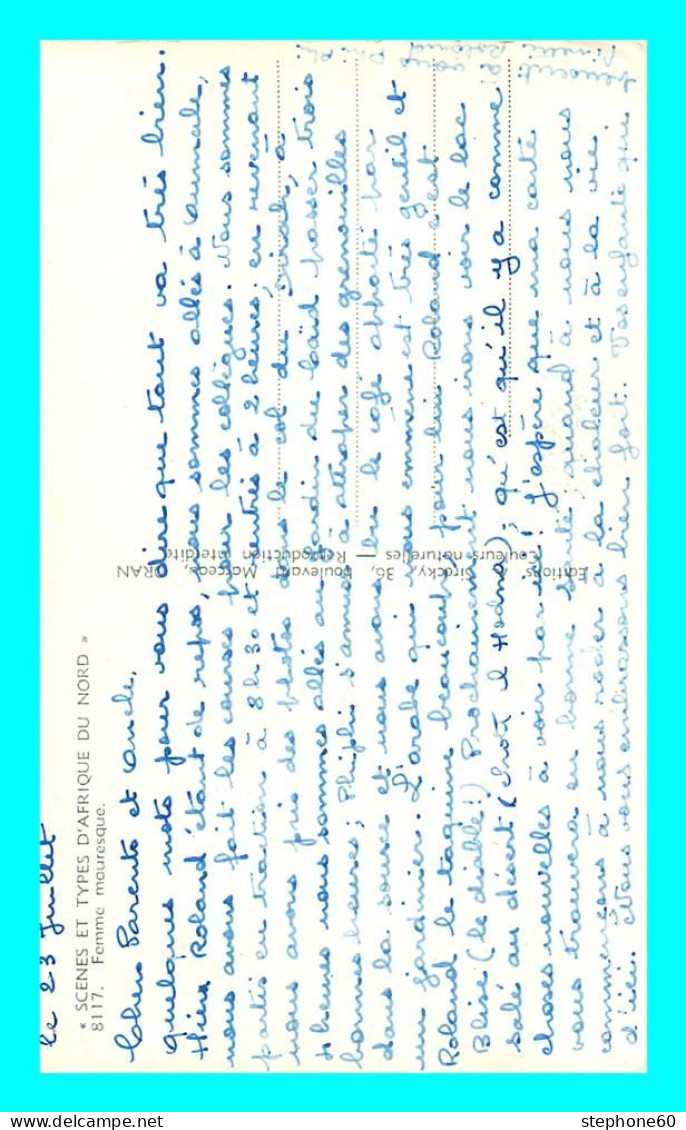 le 23 Juillet
« SCENES ET TYPES D'AFRIQUE DU NORD »
8117. Femme mauresque.
Chers Parents et Oncle,
Quelques mots pour vous dire que tout va très bien.
Hier, Roland étant de repos, nous sommes allés à Aumale,
nous avons fait les courses pour les collègues. Nous sommes
partis en traction à 8h30 et rentrés à 2 heures; en revenant
nous avons pris des photos dans le col du Dirah, à
heures nous sommes allés au jardin du Caïd passer trois
bonnes heures; Phiphi s'amuse à attraper des grenouilles
dans la source et nous avons bu le café apporté par
un jardinier. L'arabe qui nous emmène est très gentil et
Roland le taquine beaucoup, pour lui Roland c'est
Blise (le diable!) Prochainement nous irons voir le lac
salé au désert (Chott el Hodna); qu'est qu'il y a comme
choses nouvelles à voir par ici! J'espère que ma carte
vous trouvera en bonne santé, quand à nous nous
commençons à nous roder à la chaleur et à la vie
d'ici. Nous vous embrassons bien fort. Vos enfants qui
pensent à vous
Roland
Editions J. Sirecky, 36, Boulevard Marceau, ORAN
Couleurs naturelles — Reproduction interdite
stephone60